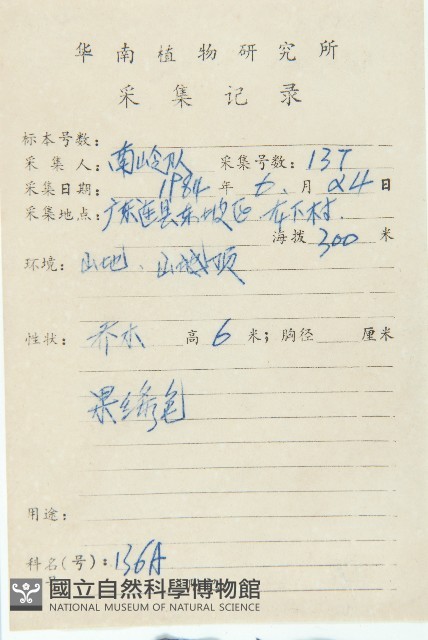 华南植物研究所
采集记录
标本号数:
采集人: 南岭队 采集号数: 137
采集日期: 1984 年 6 月 24 日
采集地点: 广东连县东坡区 下村
海拨 300 米
环境: 山地、山顶
性状: 乔木 高 6 米; 胸径 厘米
果绿色
用途:
科名(号): 136A
號
國立自然科學博物館
NATIONAL MUSEUM OF NATURAL SCIENCE